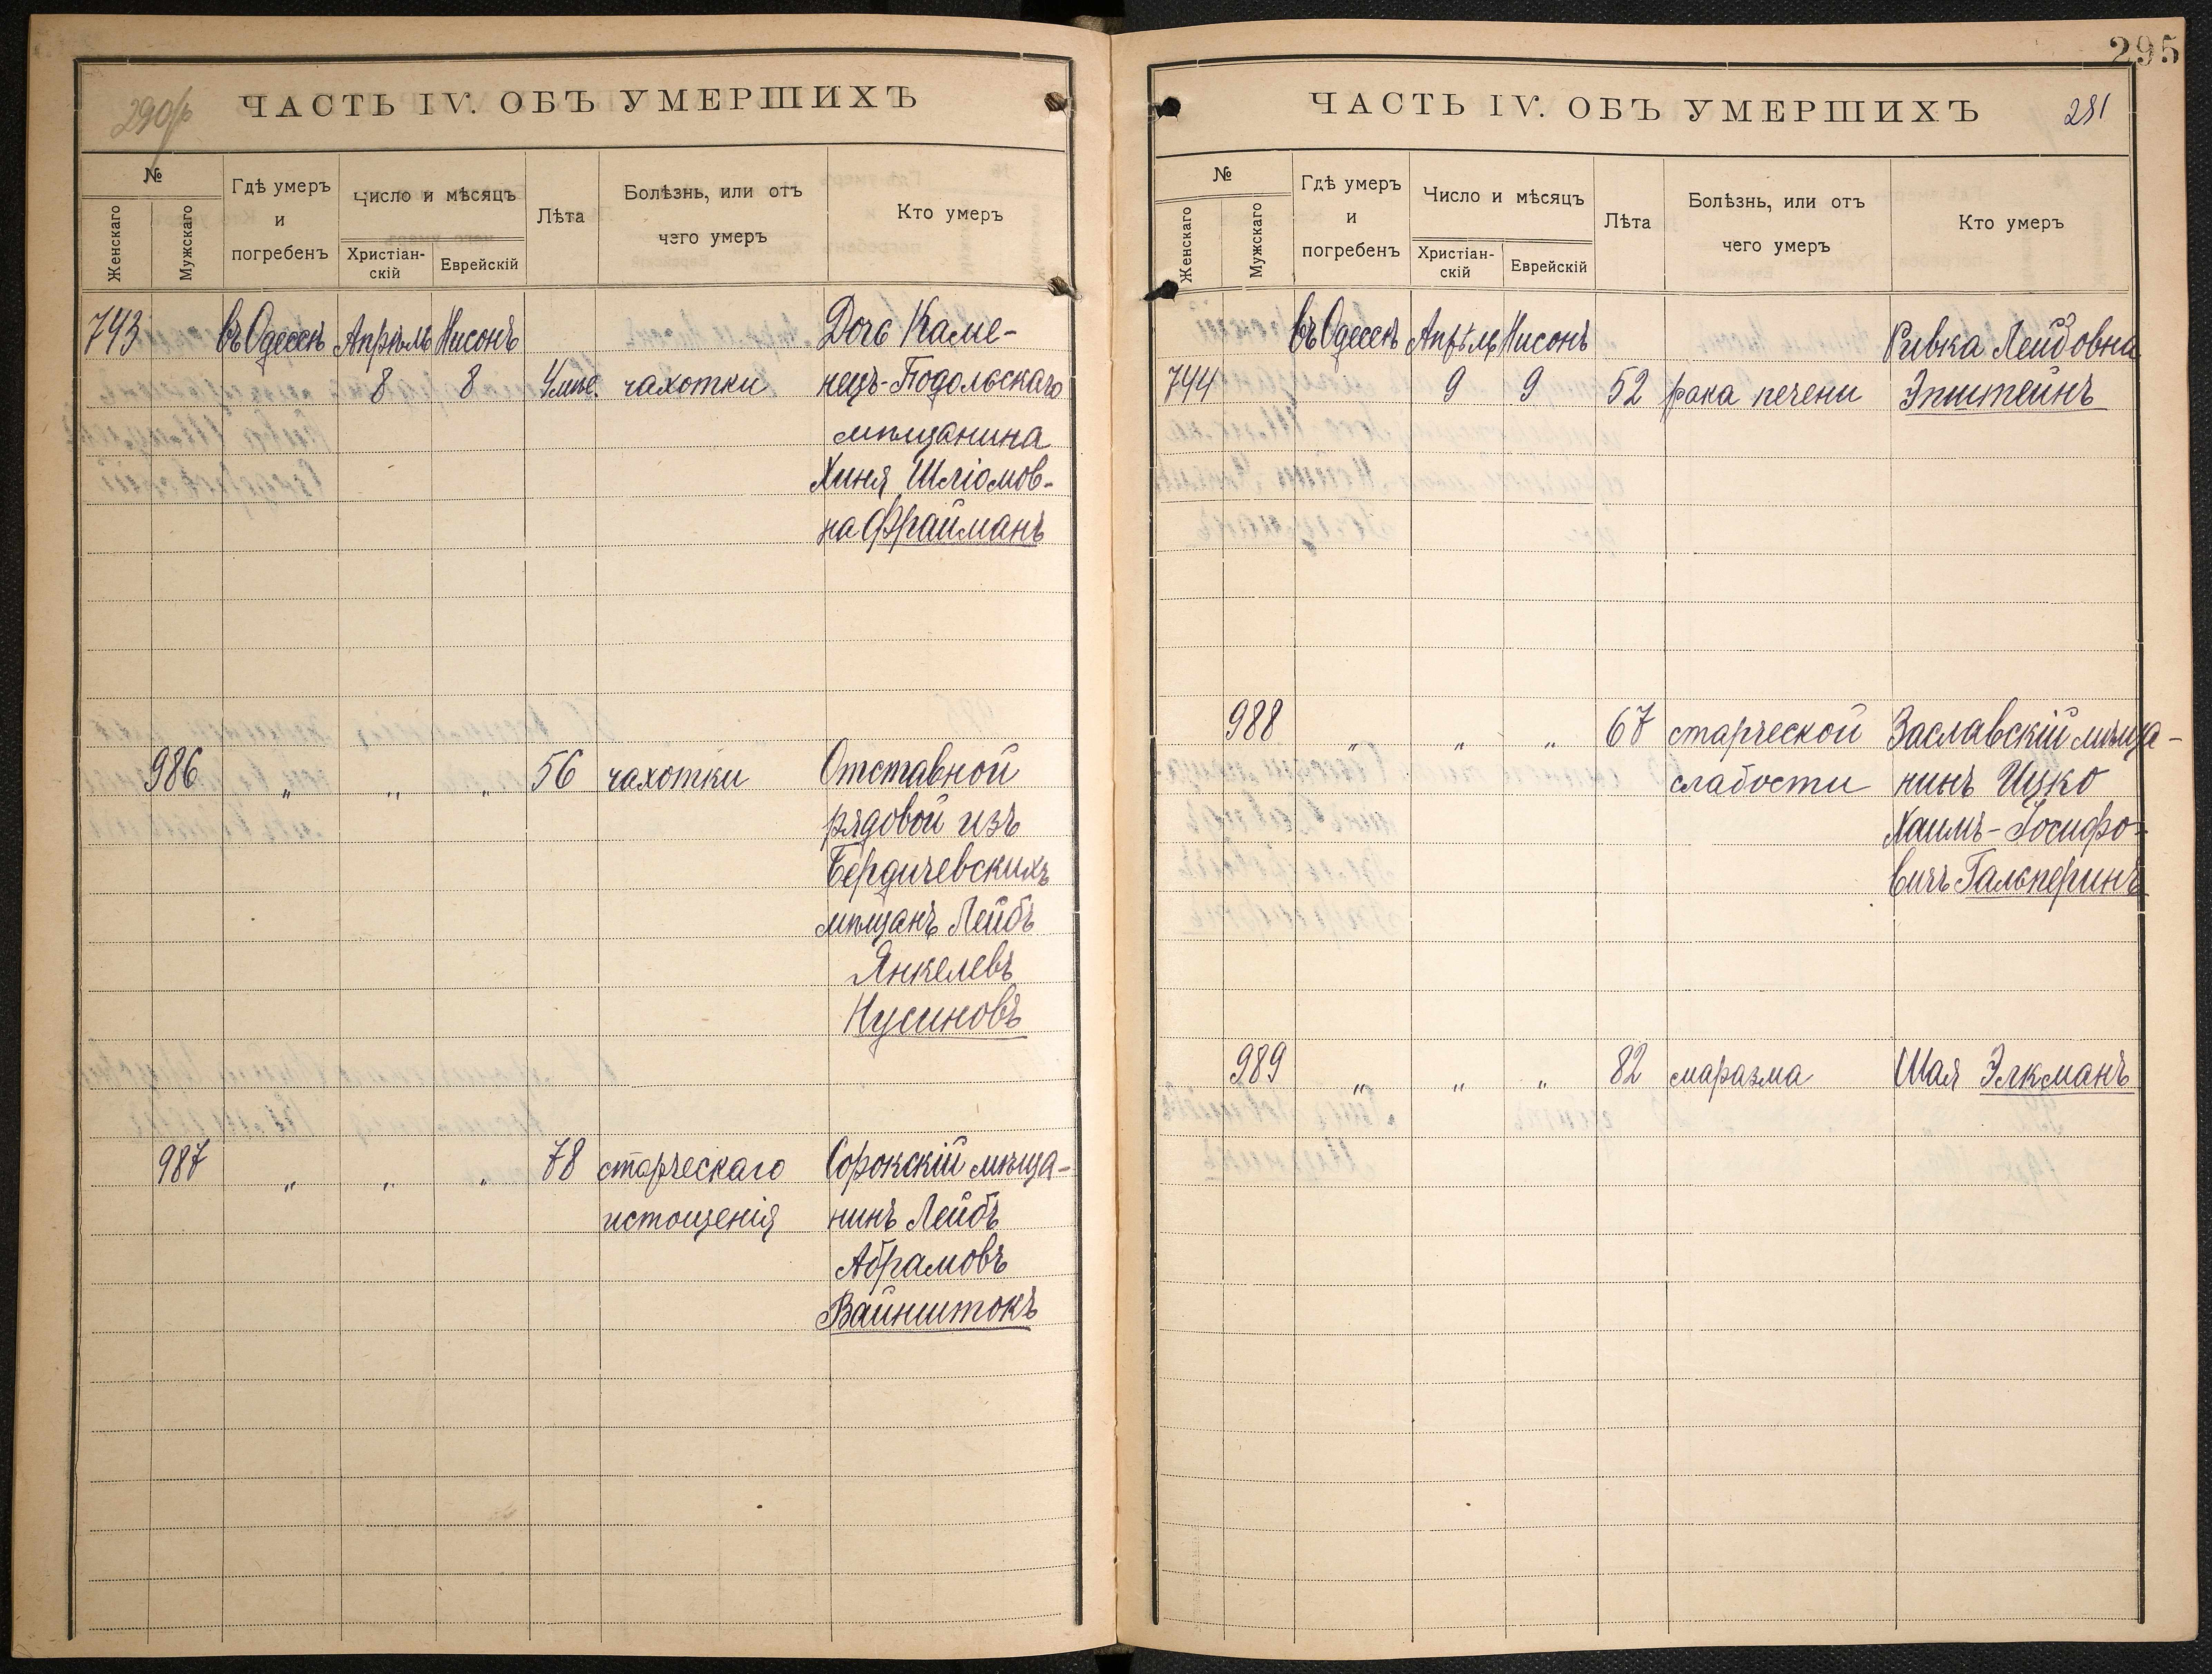 290об
ЧАСТЬ IV. ОБЪ УМЕРШИХЪ
№
Женскаго
Мужскаго
Гдѣ умеръ
и
погребенъ
Число и мѣсяцъ
Христіан-
скій
Еврейскій
Лѣта
Болѣзнь, или отъ
чего умеръ
Кто умеръ
743 въ Одессѣ Апрѣль Нисонъ Дочь Каме-
8 8 чахотки нецъ-Подольскаго
мѣщанина
Хиня Шліомов-
на Фрайманъ
986 „ „ „ 56 чахотки Отставной
рядовой изъ
Бердичевскихъ
мѣщанъ Лейбъ
Янкелевъ
Нусиновъ
987 „ „ „ 78 старческаго Сорокскій мѣща-
истощенія нинъ Лейбъ
Абрамовъ
Вайнштокъ
295
ЧАСТЬ IV. ОБЪ УМЕРШИХЪ 291
№
Женскаго
Мужскаго
Гдѣ умеръ
и
погребенъ
Число и мѣсяцъ
Христіан-
скій
Еврейскій
Лѣта
Болѣзнь, или отъ
чего умеръ
Кто умеръ
въ Одессѣ Апрѣль Нисонъ Ривка Лейбовна
744 9 9 52 рака печени Эпштейнъ
988 „ „ „ 67 старческой Заславскій мѣща-
слабости нинъ Ицко
Хаимъ-Іосифо-
вичъ Гальперинъ
989 „ „ „ 82 маразма Шая Элкманъ